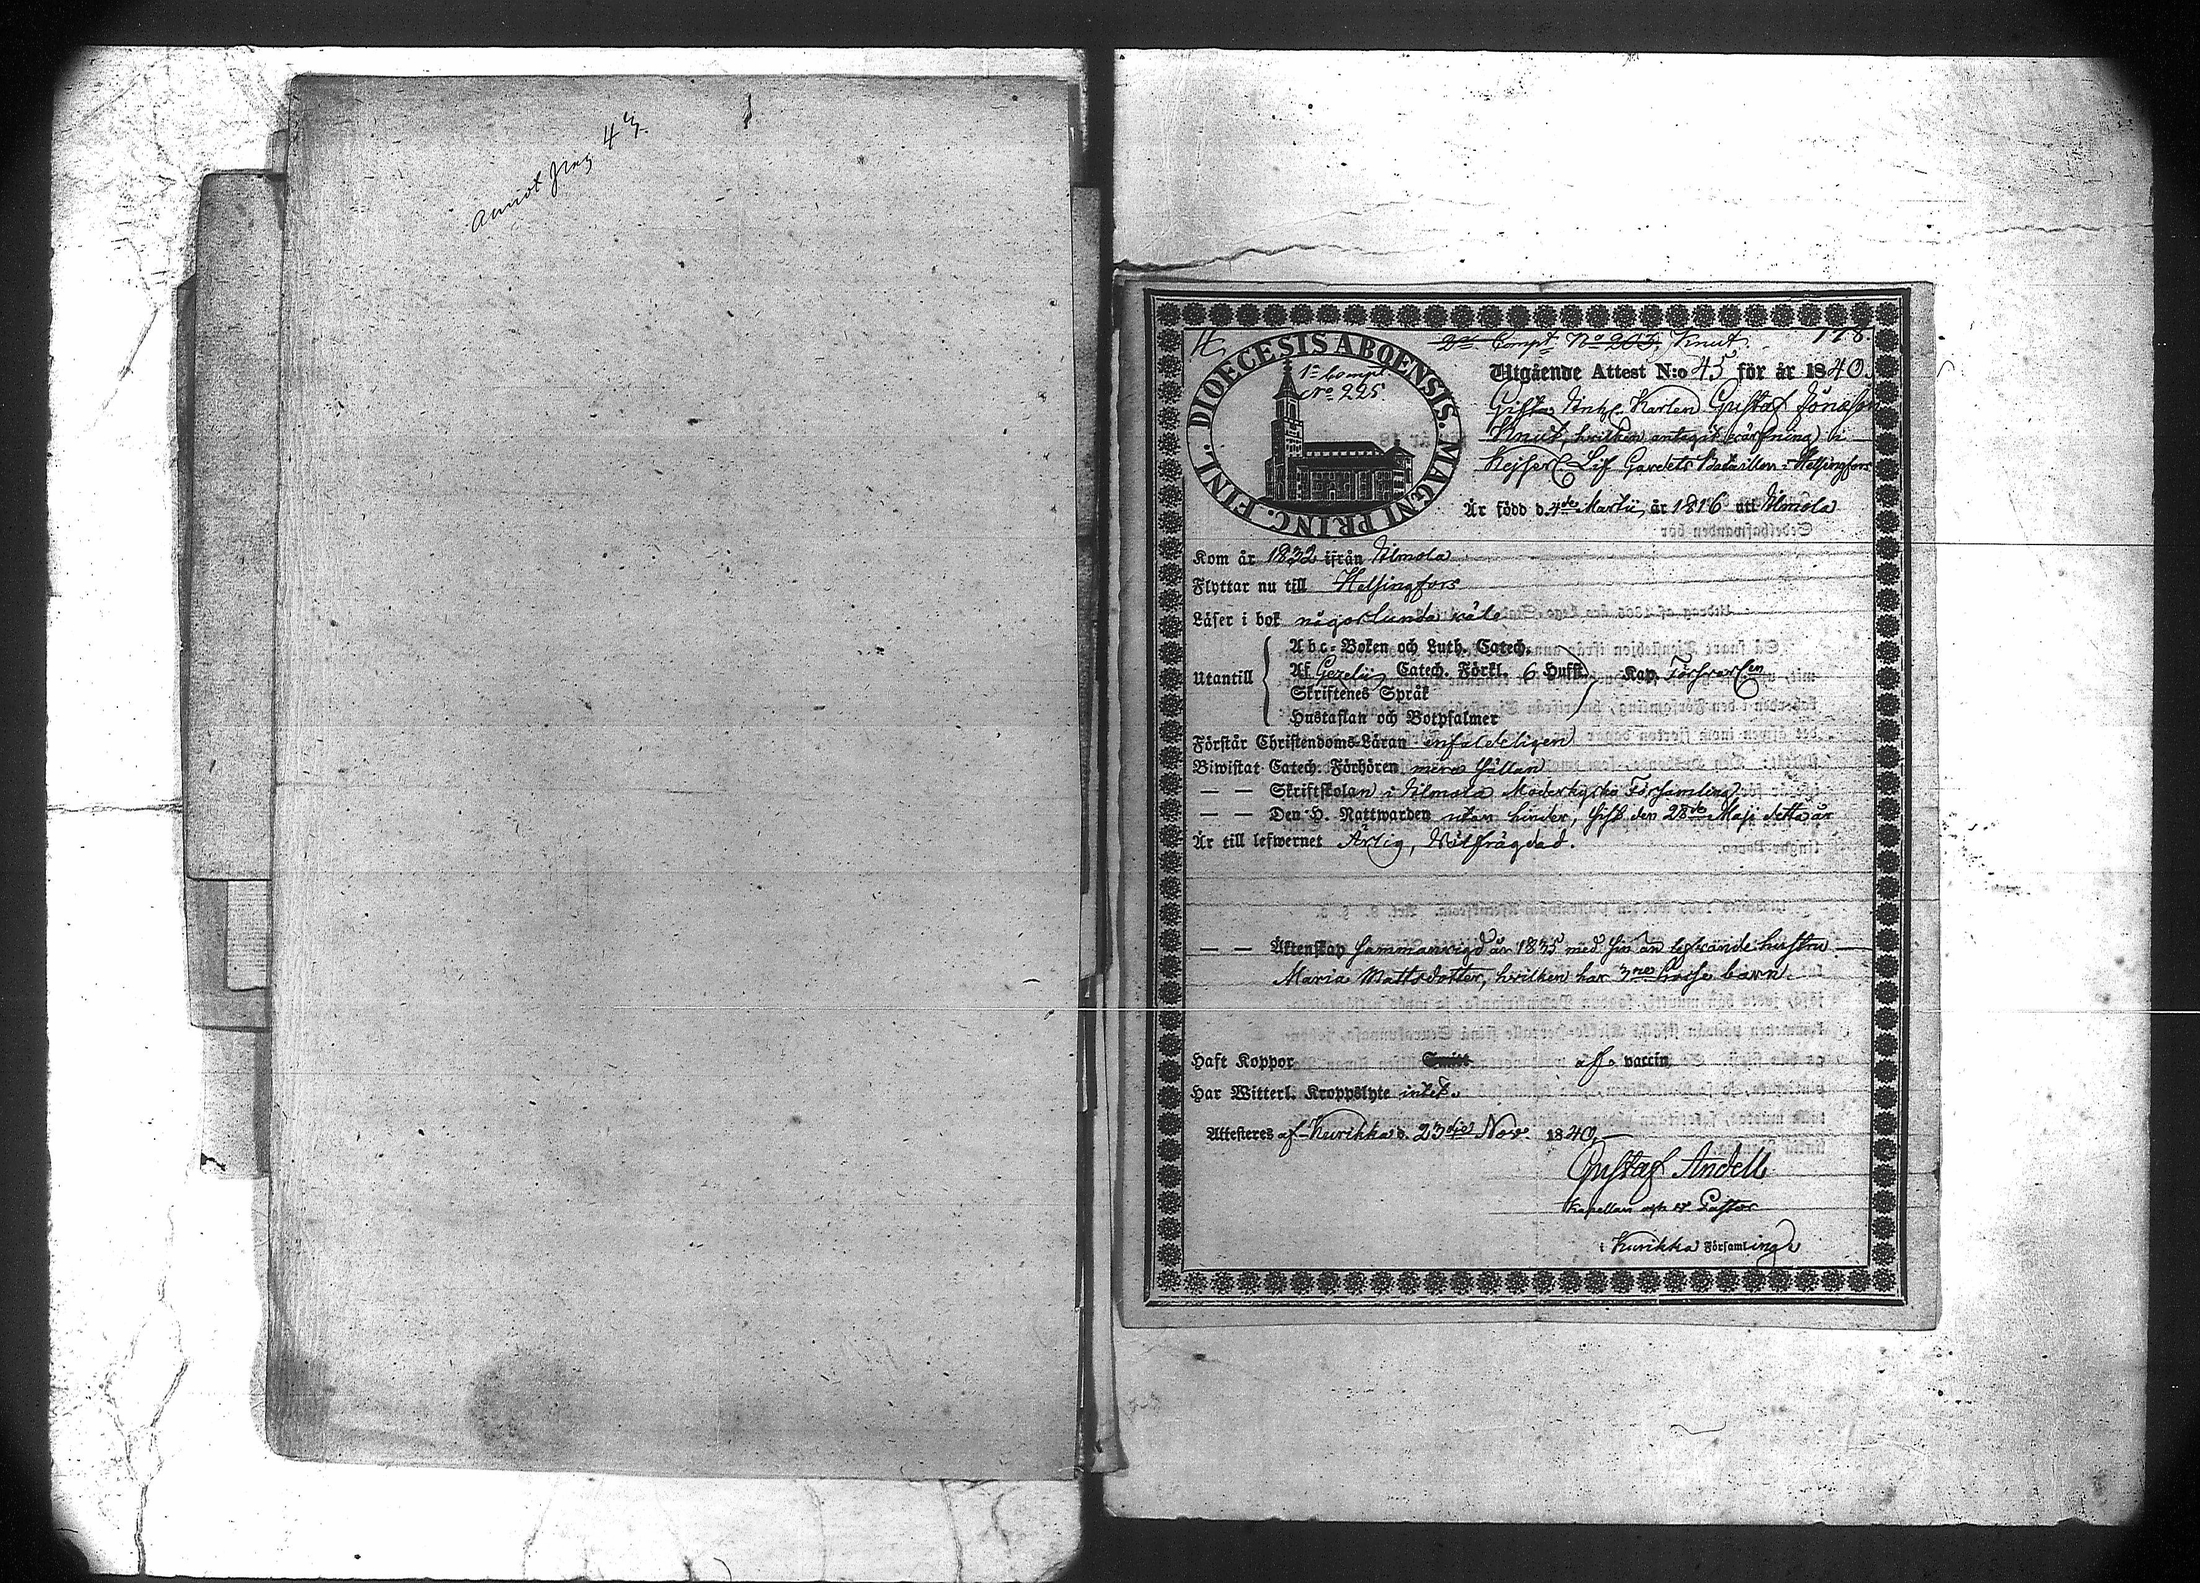 43
4
2de Compt No 203. Knut.
178.
DIOECESIS ABOENSIS. MAGNI PRINC. FINL.
1e Compt.
No 225
Utgående Attest N:o 45 för år 1840.
Gifta Karlen Gustaf Jönasson
Knut, hvilken antagit värfning i
Kejserl. Lif Gardets Bataillon i Helsingfors
Är född d. 4de Martii, år 1816 uti Ilmola
Kom år 1832 ifrån Ilmola
Flyttar nu till Helsingfors
Läser i bok någorlunda
Utantill
Abc-Boken och Luth. Catech.
Af Gezelii Catech. Förkl. 6 Hufst. Kap. Försvarl.en
Skriftenes Språk
Hustaflan och Botpsalmer
Förstår Christendoms-Läran enfaldeligen
Biwistat Catech. Förhören mera sällan
— — Skriftskolan i Ilmola Moderkyrko Församling.
— — Den H. Nattwarden utan hinder, sist den 28de Maji detta år
Är till lefwernet Ärlig, Wälfrägdad.
— — Äktenskap sammanvigd år 1835 med sin än lefvande hustru
Maria Mattsdotter, hvilken har 3ne barn.
Haft Koppor af vaccin
Har Witterl. Kroppslyte intet.
Attesteres af Kurikka d. 23dje Nov. 1840.
Gustaf Andell
Kapellan och Pastor
i Kurikka Församling